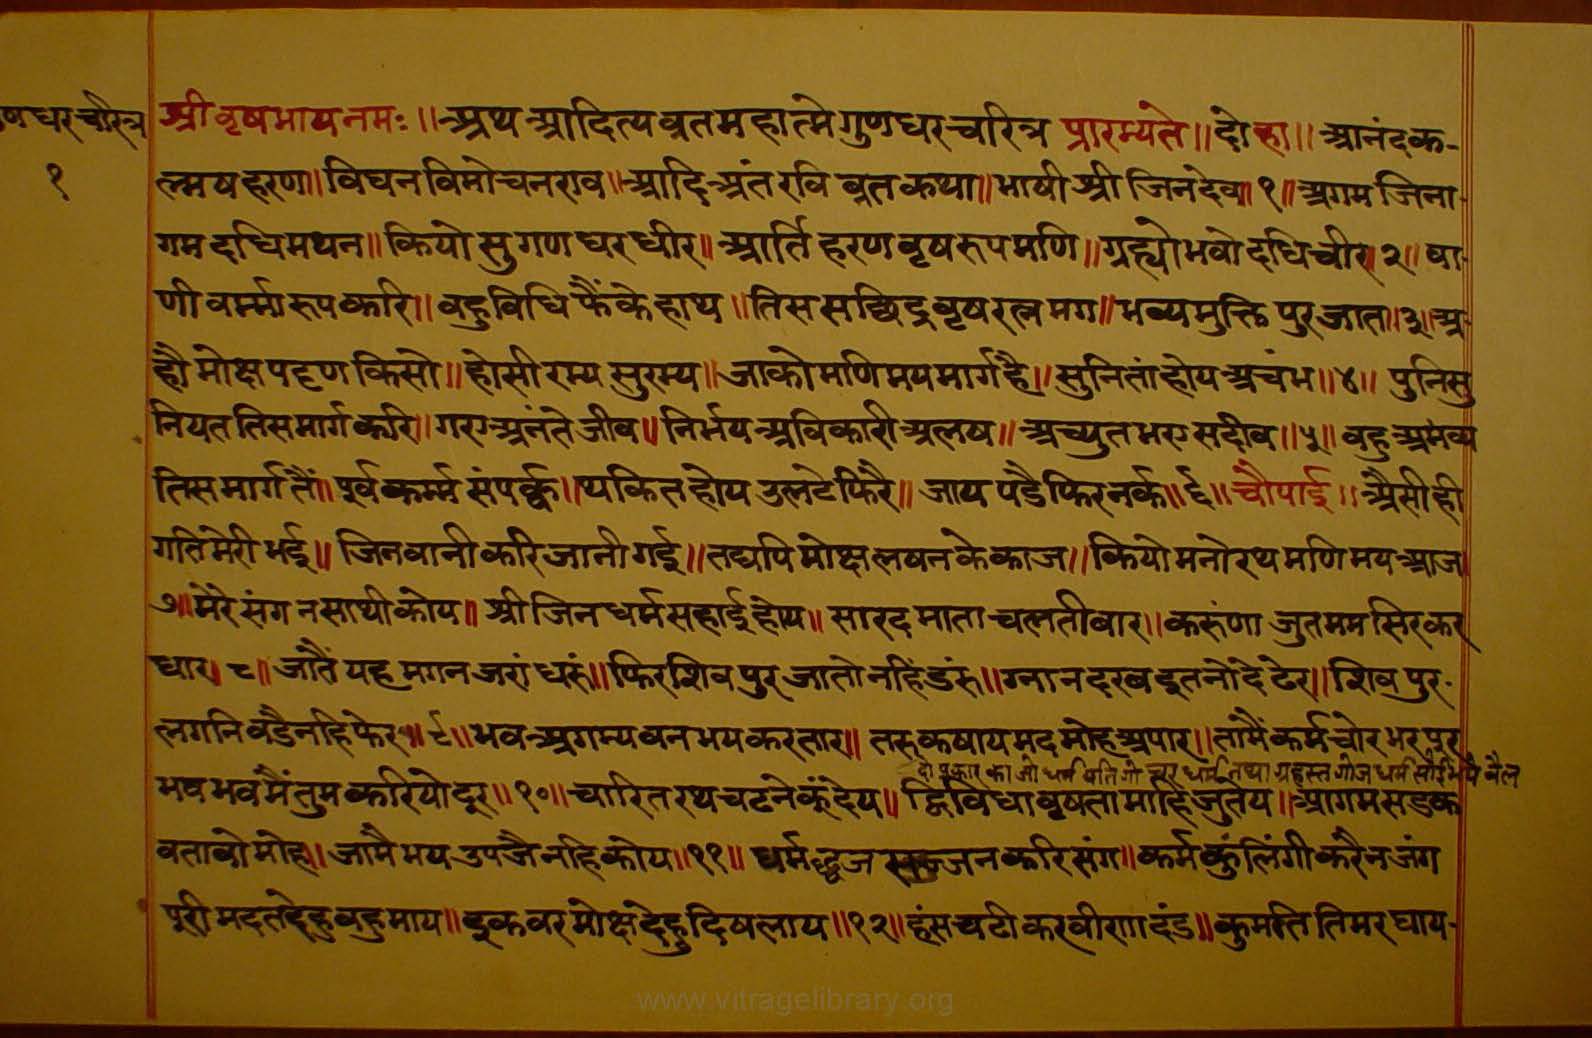 गुणधर चरित्र
१
श्री वृषभाय नमः ॥ अथ आदित्यव्रतमहात्मे गुणधर चरित्र प्रारम्यते ॥ दोहा ॥ आनंद क-
ल्मष हरण ॥ विघन विमोचन राव ॥ आदि अंत रवि व्रत कथा ॥ भाषी श्री जिनदेव ॥ १ ॥ अगम जिना-
गम दधि मथन ॥ कियो सु गणधर धीर ॥ आर्ति हरण वृष रुप मणि ॥ ग्रह्यो भवोदधि चीर ॥ २ ॥ वा-
णी वर्म्म रुप करि ॥ वहु विधि फैंके हाथ ॥ तिस सछिद्र वृष रत्न मग ॥ भव्य मुक्ति पुर जात ॥ ३ ॥ अ-
हौ मोक्ष पट्टण किसो ॥ होसी रम्य सुरम्य ॥ जाको मणिमय मार्ग है ॥ सुनितां होय अचंभ ॥ ४ ॥ पुनि सु
नियत तिस मार्ग करि ॥ गए अनंते जीव ॥ निर्भय अविकारी अलष ॥ अच्युत भए सदीव ॥ ५ ॥ वहु अभव्य
तिस मार्ग तैं ॥ पूर्व कर्म्म संपर्क्क ॥ थकित होय उलटे फिरै ॥ जाय पडै फिर नर्क ॥ ६ ॥ चौपाई ॥ अैसी ही
गति मेरी भई ॥ जिनवानी करि जानी गई ॥ तद्यपि मोक्ष लषन के काज ॥ कियो मनोरथ मणिमय आज
७ ॥ मेरै संग न साथी कोय ॥ श्री जिन धर्म सहाई होय ॥ सारद माता चलती वार ॥ करुंणा जुत मम सिर कर
धार ॥ ८ ॥ जातैं यह मग नजरां धरुं ॥ फिर शिवपुर जातो नहिं डरुं ॥ ग्नान दरव इतनों दे टेर ॥ शिवपुर-
लग निवडै नहि फेर ॥ ९ ॥ भव अगम्य वन भय करतार ॥ तरु कषाय मद मोह अपार ॥ तामैं कर्म चोर भरपूर
भव भव मैं तुम करियो दूर ॥ १० ॥ चारित रथ चटने कूं देय ॥ द्विविधा वृष ता माहिं जुतेय ॥ आगम सडक
वतावो मोह ॥ जामै भय उपजै नहि कोय ॥ ११ ॥ धर्मद्धुज सज्जन करि संग ॥ कर्म कुंलिंगी करै न जंग
पूरी मदत देहु वहु माय ॥ इक वर मोक्ष देहु दिषलाय ॥ १२ ॥ हंस चटी कर वीणा दंड ॥ कुमति तिमर घाय-
www.vitragelibrary.org